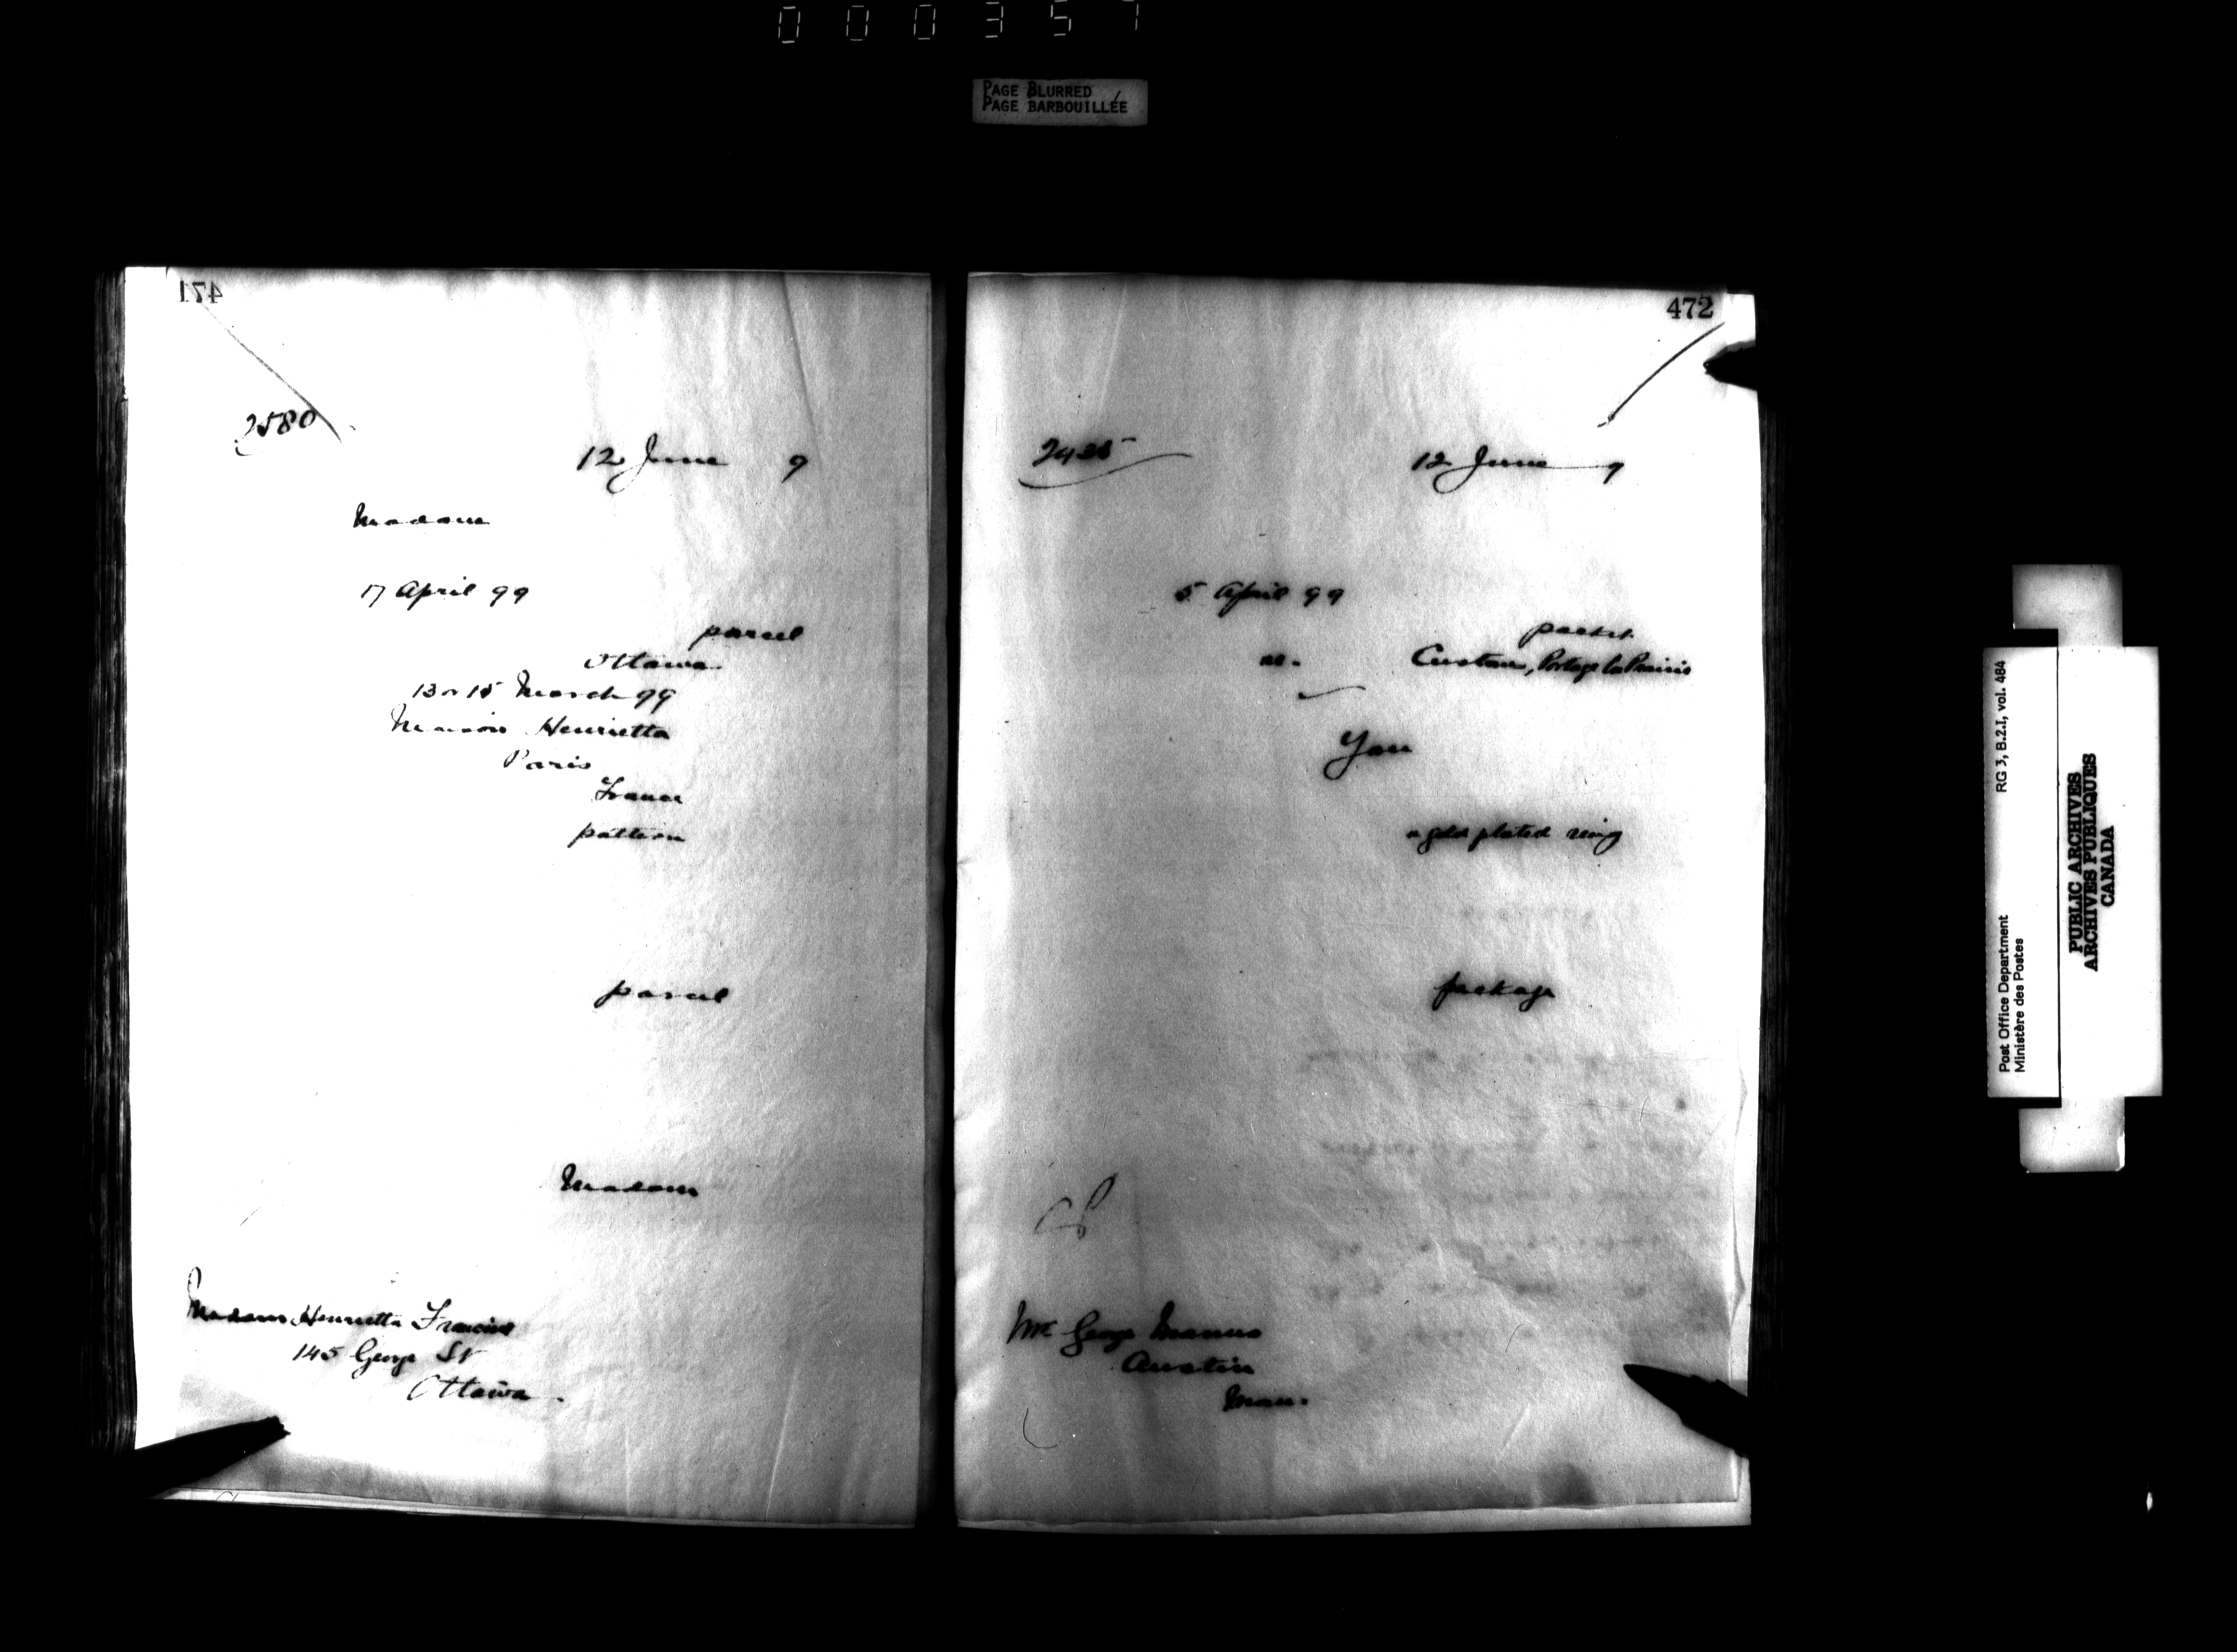 000357
PAGE BLURRED
PAGE BARBOUILLÉE
471
2580
12 June 9
Madam
17 April 99
parcel
Ottawa
13 or 15 March 99
Maison Henrietta
Paris
France
pattern
parcel
Madam
Madam Henrietta
145 George St
Ottawa.
472
12 June 9
5 April 99
packet
Portage la Prairie
You
a gold plated ring
package
Mr George
Austin
Man.
Post Office Department
Ministère des Postes
RG 3, B.2.I, vol. 484
PUBLIC ARCHIVES
ARCHIVES PUBLIQUES
CANADA